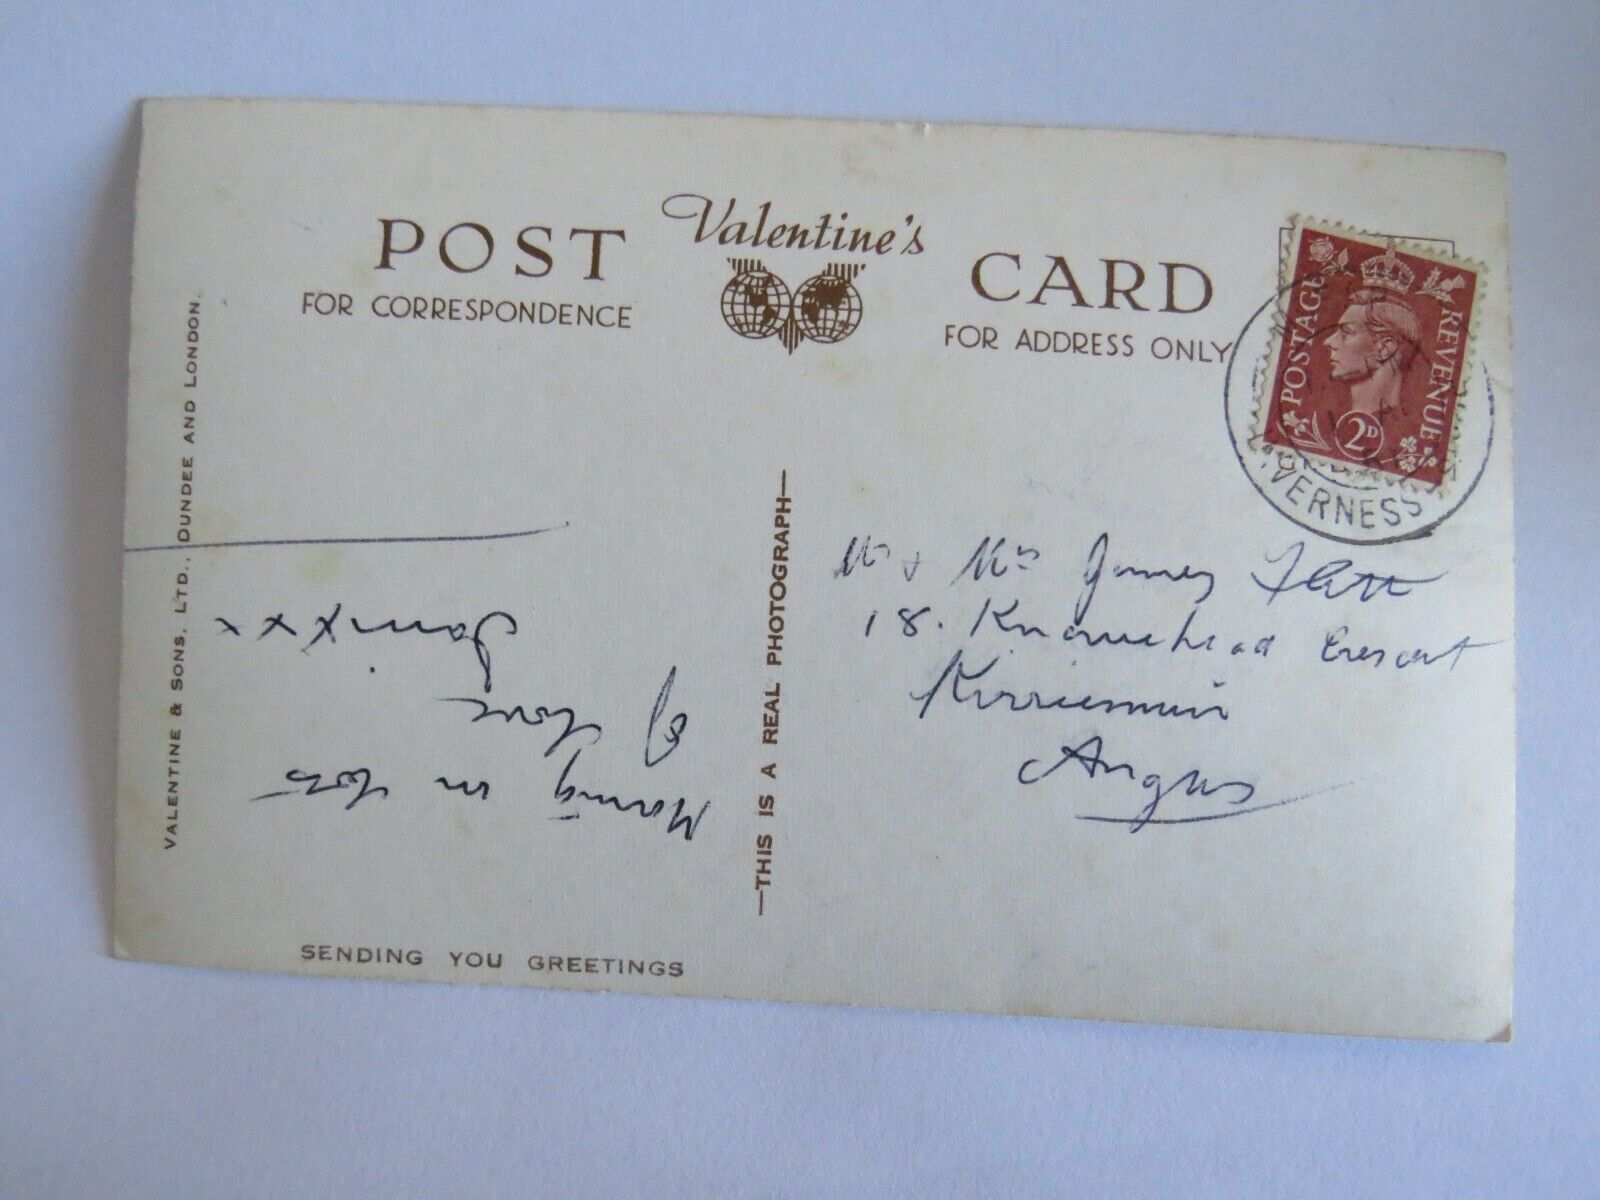 Valentine's
POST CARD
FOR CORRESPONDENCE
FOR ADDRESS ONLY
POSTAGE REVENUE
2D
VERNESS
VALENTINE & SONS, LTD., DUNDEE AND LONDON.
—THIS IS A REAL PHOTOGRAPH—
in lots
of love
xxx
Mr & Mrs James
18. Knowehead Crescent
Kirriemuir
Angus
SENDING YOU GREETINGS